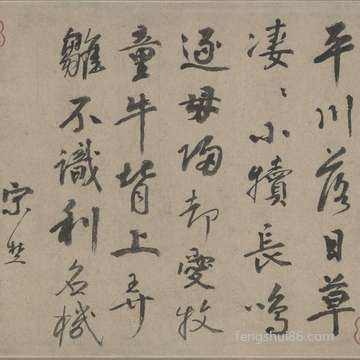 平川落日草
凄〻小犢長鳴
逐母歸却愛牧
童牛背上弄
雛不識利名機
宗
fengshui86.com